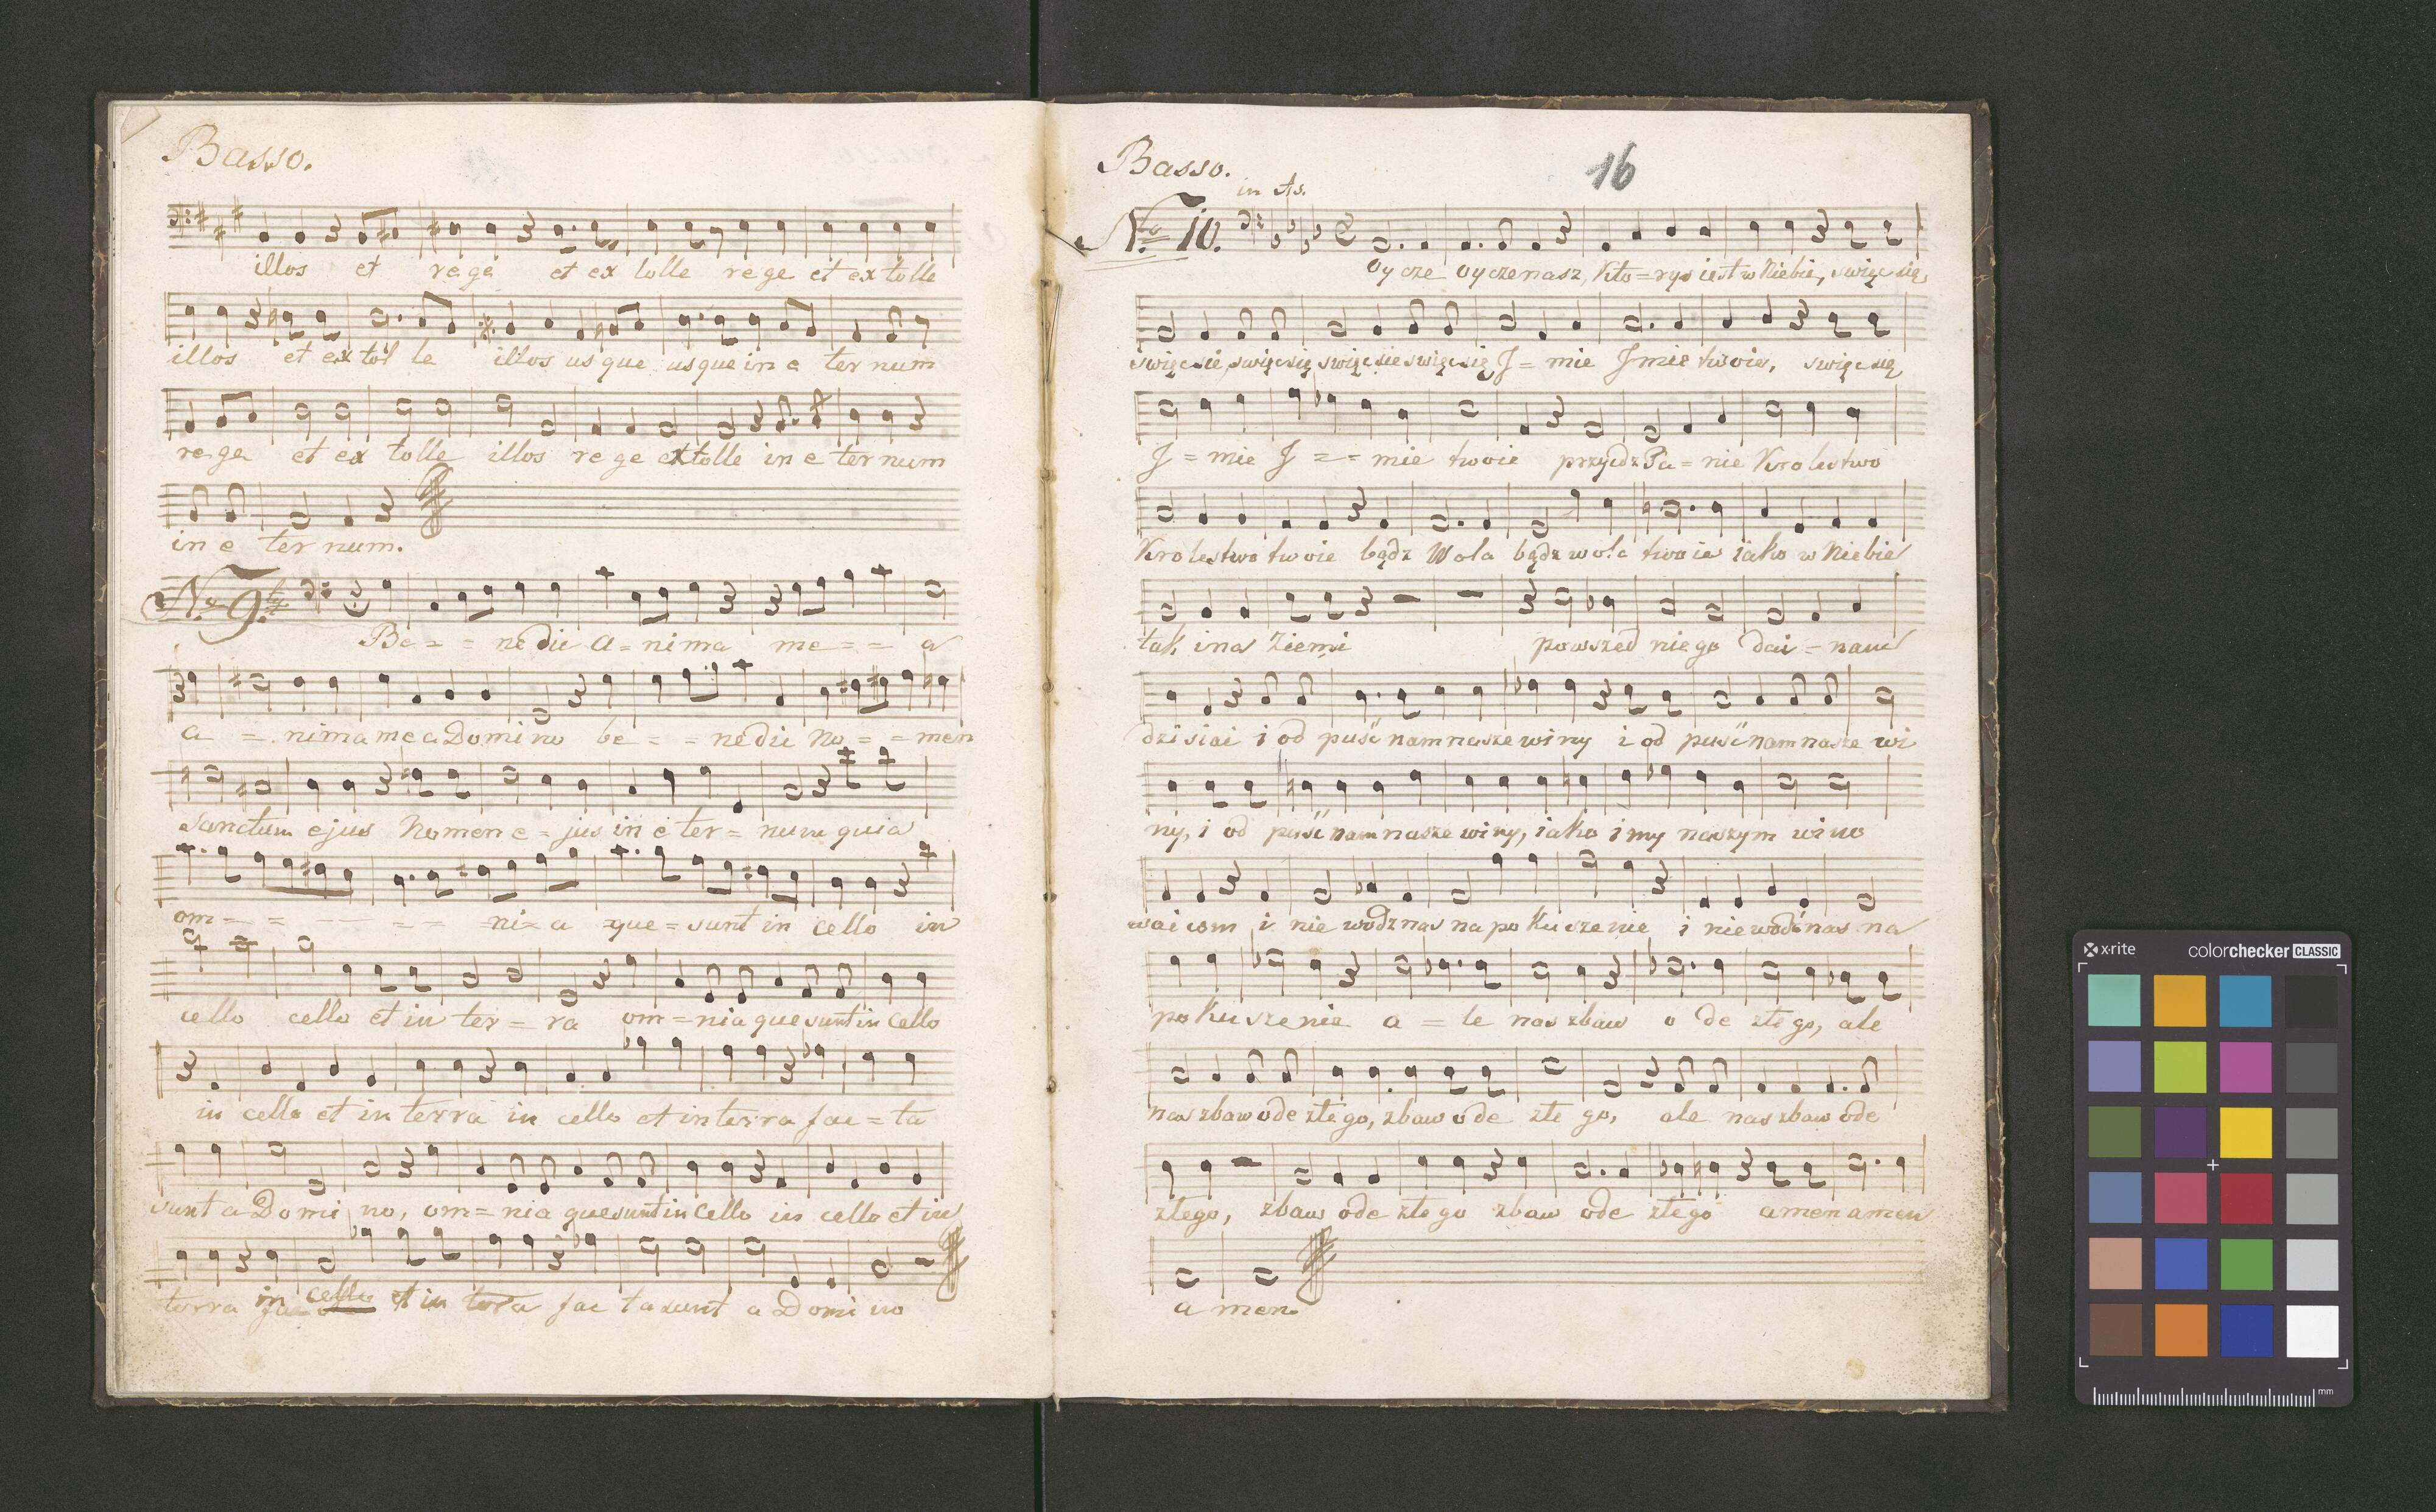 Basso.
illos et rege et ex tolle rege et extolle
illos et extol le illos usque usque in e ternum
rege et ex tolle illos rege extolle in e ternum
in e ternum.
No. 9.
Be = = nedic a = nima me = = a
a = nima mea Domino be = = nedic No = = men
Sanctum ejus Nomen e = jus in e ter = num quia
om = = = = = = ni = a que = sunt in cello in
cello cello et in ter = ra om = nia que sunt in cello
in cello et in terra in cello et in terra fac = ta
sunt a Domi no, om = nia que sunt in cello in cello et in
terra in cello et in tera fac ta sunt a Domi no
Basso.
16
in As.
No. 10.
Oycze oycze nasz, Kto = rys iest w Niebie, swięc się
swięc sie, swięc się swięc sie swięc się J = mie Jmie twoie, swięc się
J = mie J = = mie twoie przyidz Pa = nie Krolestwo
Krolestwo twoie bądz Wola bądz wola twoia iako w Niebie
tak, i na Ziemi powszed niego dai = nam
dzisiai i od puść nam nasze winy i od puść nam nasze wi
ny, i od puść nam nasze winy, iako i my naszym wino
waicom i nie wodz nas na pokuszenie i nie wodz nas na
pokuszenie a = le nas zbaw o de złego, ale
nas zbaw ode złego, zbaw ode złe go, ale nas zbaw ode
złego, zbaw ode złego zbaw ode złego amen amen
a men
x-rite
colorchecker CLASSIC
mm